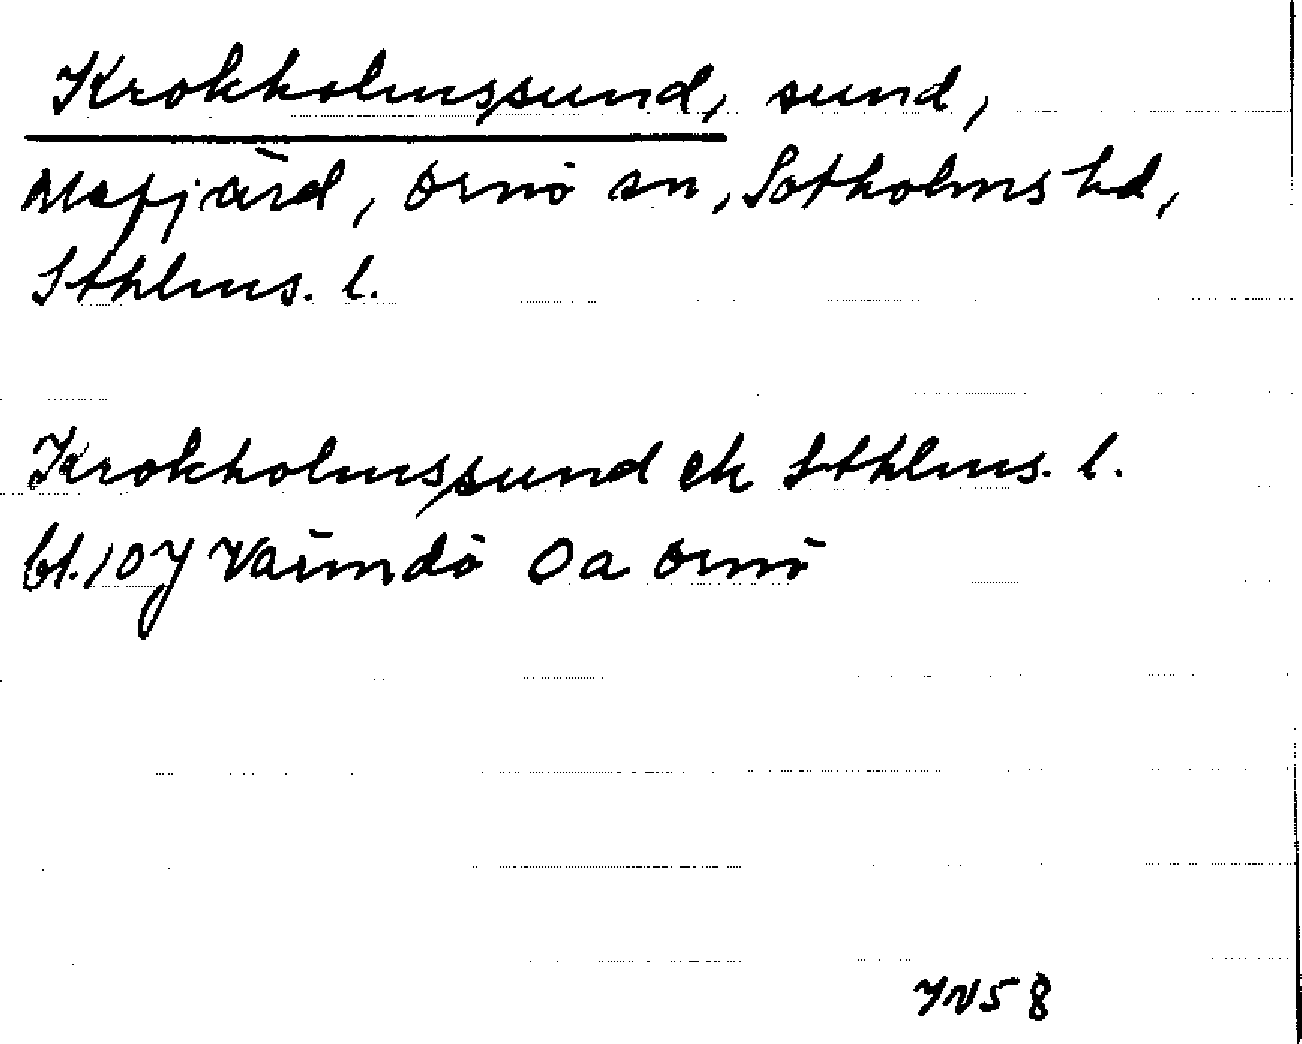 Krokholmssund, sund,
Mefjärd, Ornö sn, Sotholms hd,
Sthlms. l.
Krokholmssund ek Sthlms. l.
bl. 107 Värmdö Oa Ornö